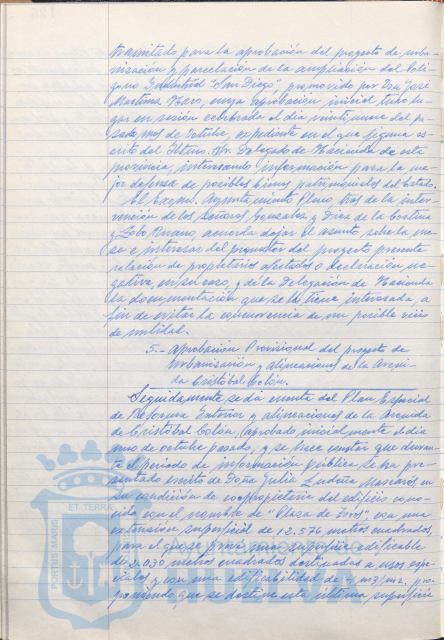 tramitado para la aprobación del proyecto de urba-
nización y parcelación de la ampliación del Polí-
gono Industrial "San Diego", promovido por Don José
Martínez, cuya aprobación inicial tuvo lu-
gar en sesión celebrada el día veintiuno del pa-
sado mes de Octubre, expediente en el que figura es-
crito del Iltmo. Sr. Delegado de Hacienda de esta
provincia, interesando información para la me-
jor defensa de posibles bienes patrimoniales del Estado.
El Excmo. Ayuntamiento Pleno, tras de la inter-
vención de los Señores González y Díaz de la Cortina
y Lobo Ruano, acuerda dejar el asunto sobre la me-
sa e interesar del promotor del proyecto presente
relación de propietarios afectados o declaración ne-
gativa en su caso, y de la Delegación de Hacienda
la documentación que se le tiene interesada, a
fin de evitar la concurrencia de un posible vicio
de nulidad.
5.- Aprobación Provisional del proyecto de
Urbanización y alineaciones de la Aveni-
da Cristóbal Colón.
Seguidamente se da cuenta del Plan Especial
de Reforma Interior y alineaciones de la Avenida
de Cristóbal Colón, aprobado inicialmente el día
uno de octubre pasado, y se hace constar que duran-
te el período de información pública se ha pre-
sentado escrito de Doña Julia
su condición de copropietaria del edificio cono-
cido con el nombre de "Plaza de Toros", con una
extensión superficial de 12.576 metros cuadrados,
para el que se prevé una superficie edificable
de 2.030 metros cuadrados destinados a usos espe-
ciales y con una edificabilidad de 4 m3/m2, pro-
poniendo que se destine esta última superficie
PORTUS MARIS ET TERRAE